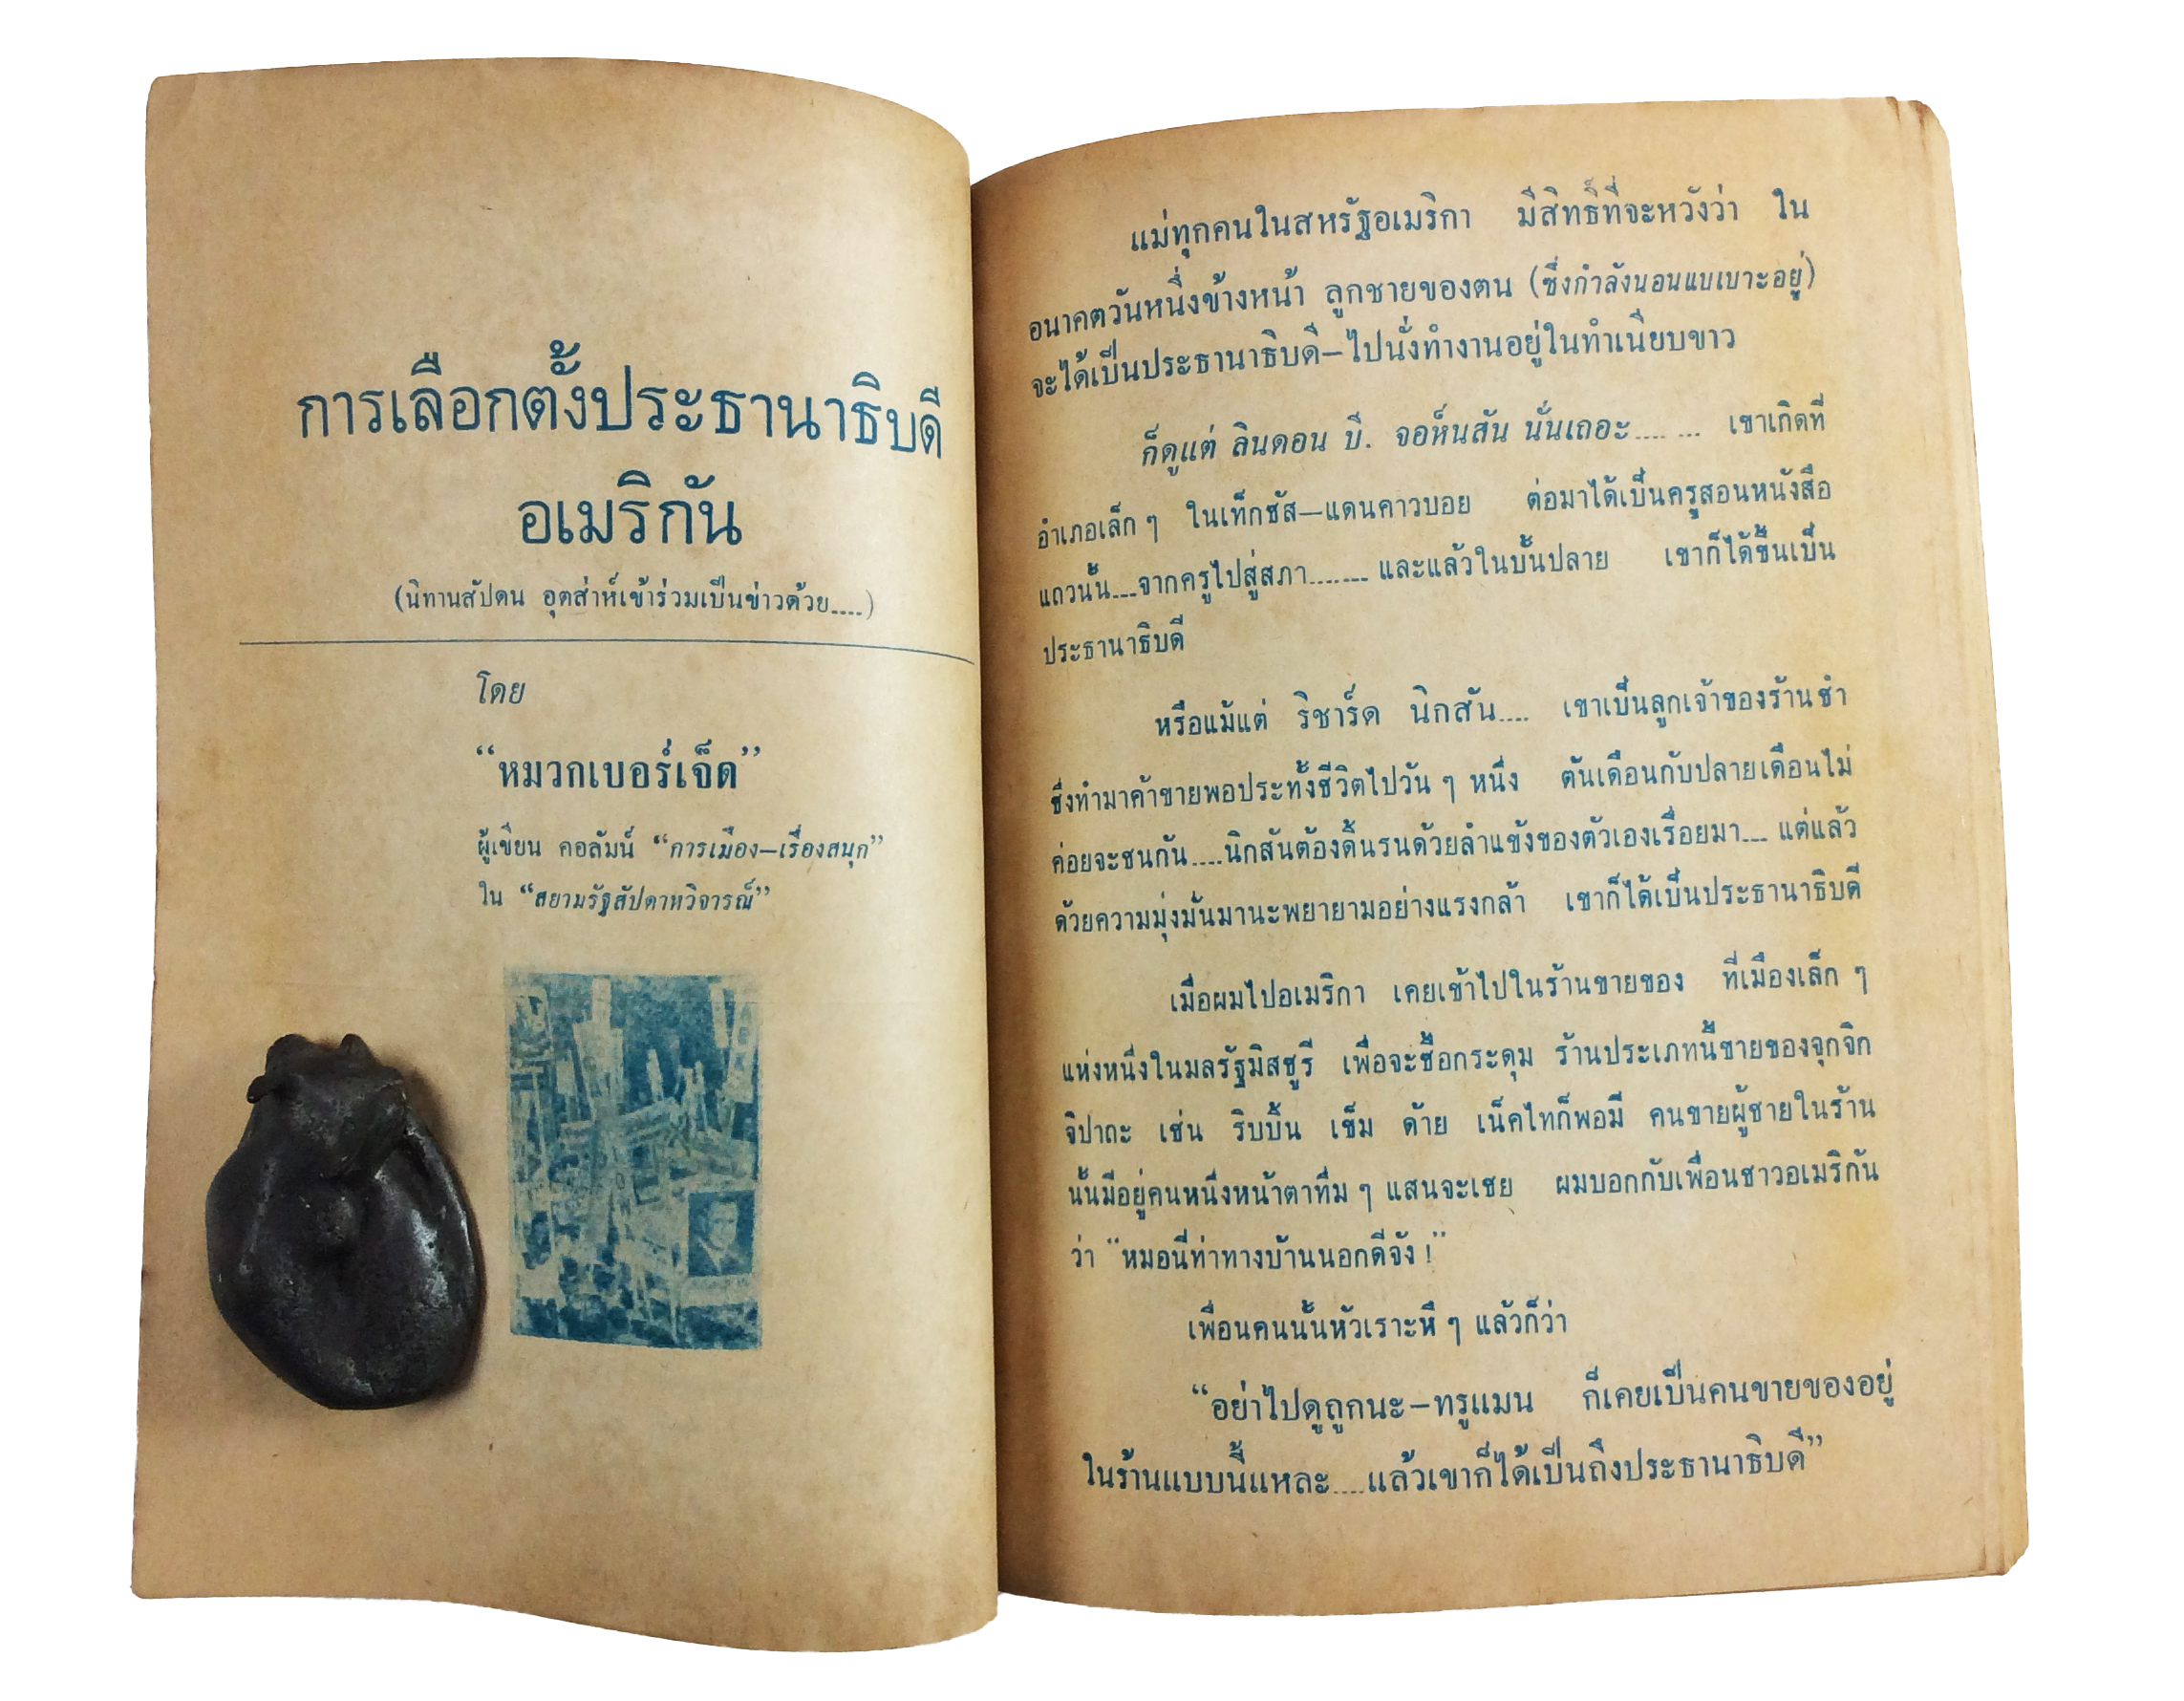 การเลือกตั้งประธานาธิบดี
อเมริกัน
(นิทานสัปดน อุตส่าห์เข้าร่วมเป็นข่าวด้วย....)
โดย
“หมวกเบอร์เจ็ด”
ผู้เขียน คอลัมน์ “การเมือง—เรื่องสนุก”
ใน “สยามรัฐสัปดาหวิจารณ์”
แม่ทุกคนในสหรัฐอเมริกา มีสิทธิ์ที่จะหวังว่า ใน
อนาคตวันหนึ่งข้างหน้า ลูกชายของตน (ซึ่งกำลังนอนแบเบาะอยู่)
จะได้เป็นประธานาธิบดี—ไปนั่งทำงานอยู่ในทำเนียบขาว
ก็ดูแต่ ลินดอน บี. จอห์นสัน นั่นเถอะ.... ... เขาเกิดที่
อำเภอเล็ก ๆ ในเท็กซัส—แดนคาวบอย ต่อมาได้เป็นครูสอนหนังสือ
แถวนั้น...จากครูไปสู่สภา....... และแล้วในบั้นปลาย เขาก็ได้ขึ้นเป็น
ประธานาธิบดี
หรือแม้แต่ ริชาร์ด นิกสัน.... เขาเป็นลูกเจ้าของร้านชำ
ซึ่งทำมาค้าขายพอประทั้งชีวิตไปวัน ๆ หนึ่ง ต้นเดือนกับปลายเดือนไม่
ค่อยจะชนกัน....นิกสันต้องดิ้นรนด้วยลำแข้งของตัวเองเรื่อยมา... แต่แล้ว
ด้วยความมุ่งมั่นมานะพยายามอย่างแรงกล้า เขาก็ได้เป็นประธานาธิบดี
เมื่อผมไปอเมริกา เคยเข้าไปในร้านขายของ ที่เมืองเล็ก ๆ
แห่งหนึ่งในมลรัฐมิสซูรี เพื่อจะซื้อกระดุม ร้านประเภทนี้ขายของจุกจิก
จิปาถะ เช่น ริบบิ้น เข็ม ด้าย เน็คไทก็พอมี คนขายผู้ชายในร้าน
นั้นมีอยู่คนหนึ่งหน้าตาทึ่ม ๆ แสนจะเชย ผมบอกกับเพื่อนชาวอเมริกัน
ว่า “หมอนี่ท่าทางบ้านนอกดีจัง !”
เพื่อนคนนั้นหัวเราะหึ ๆ แล้วก็ว่า
“อย่าไปดูถูกนะ—ทรูแมน ก็เคยเป็นคนขายของอยู่
ในร้านแบบนี้แหละ....แล้วเขาก็ได้เป็นถึงประธานาธิบดี”